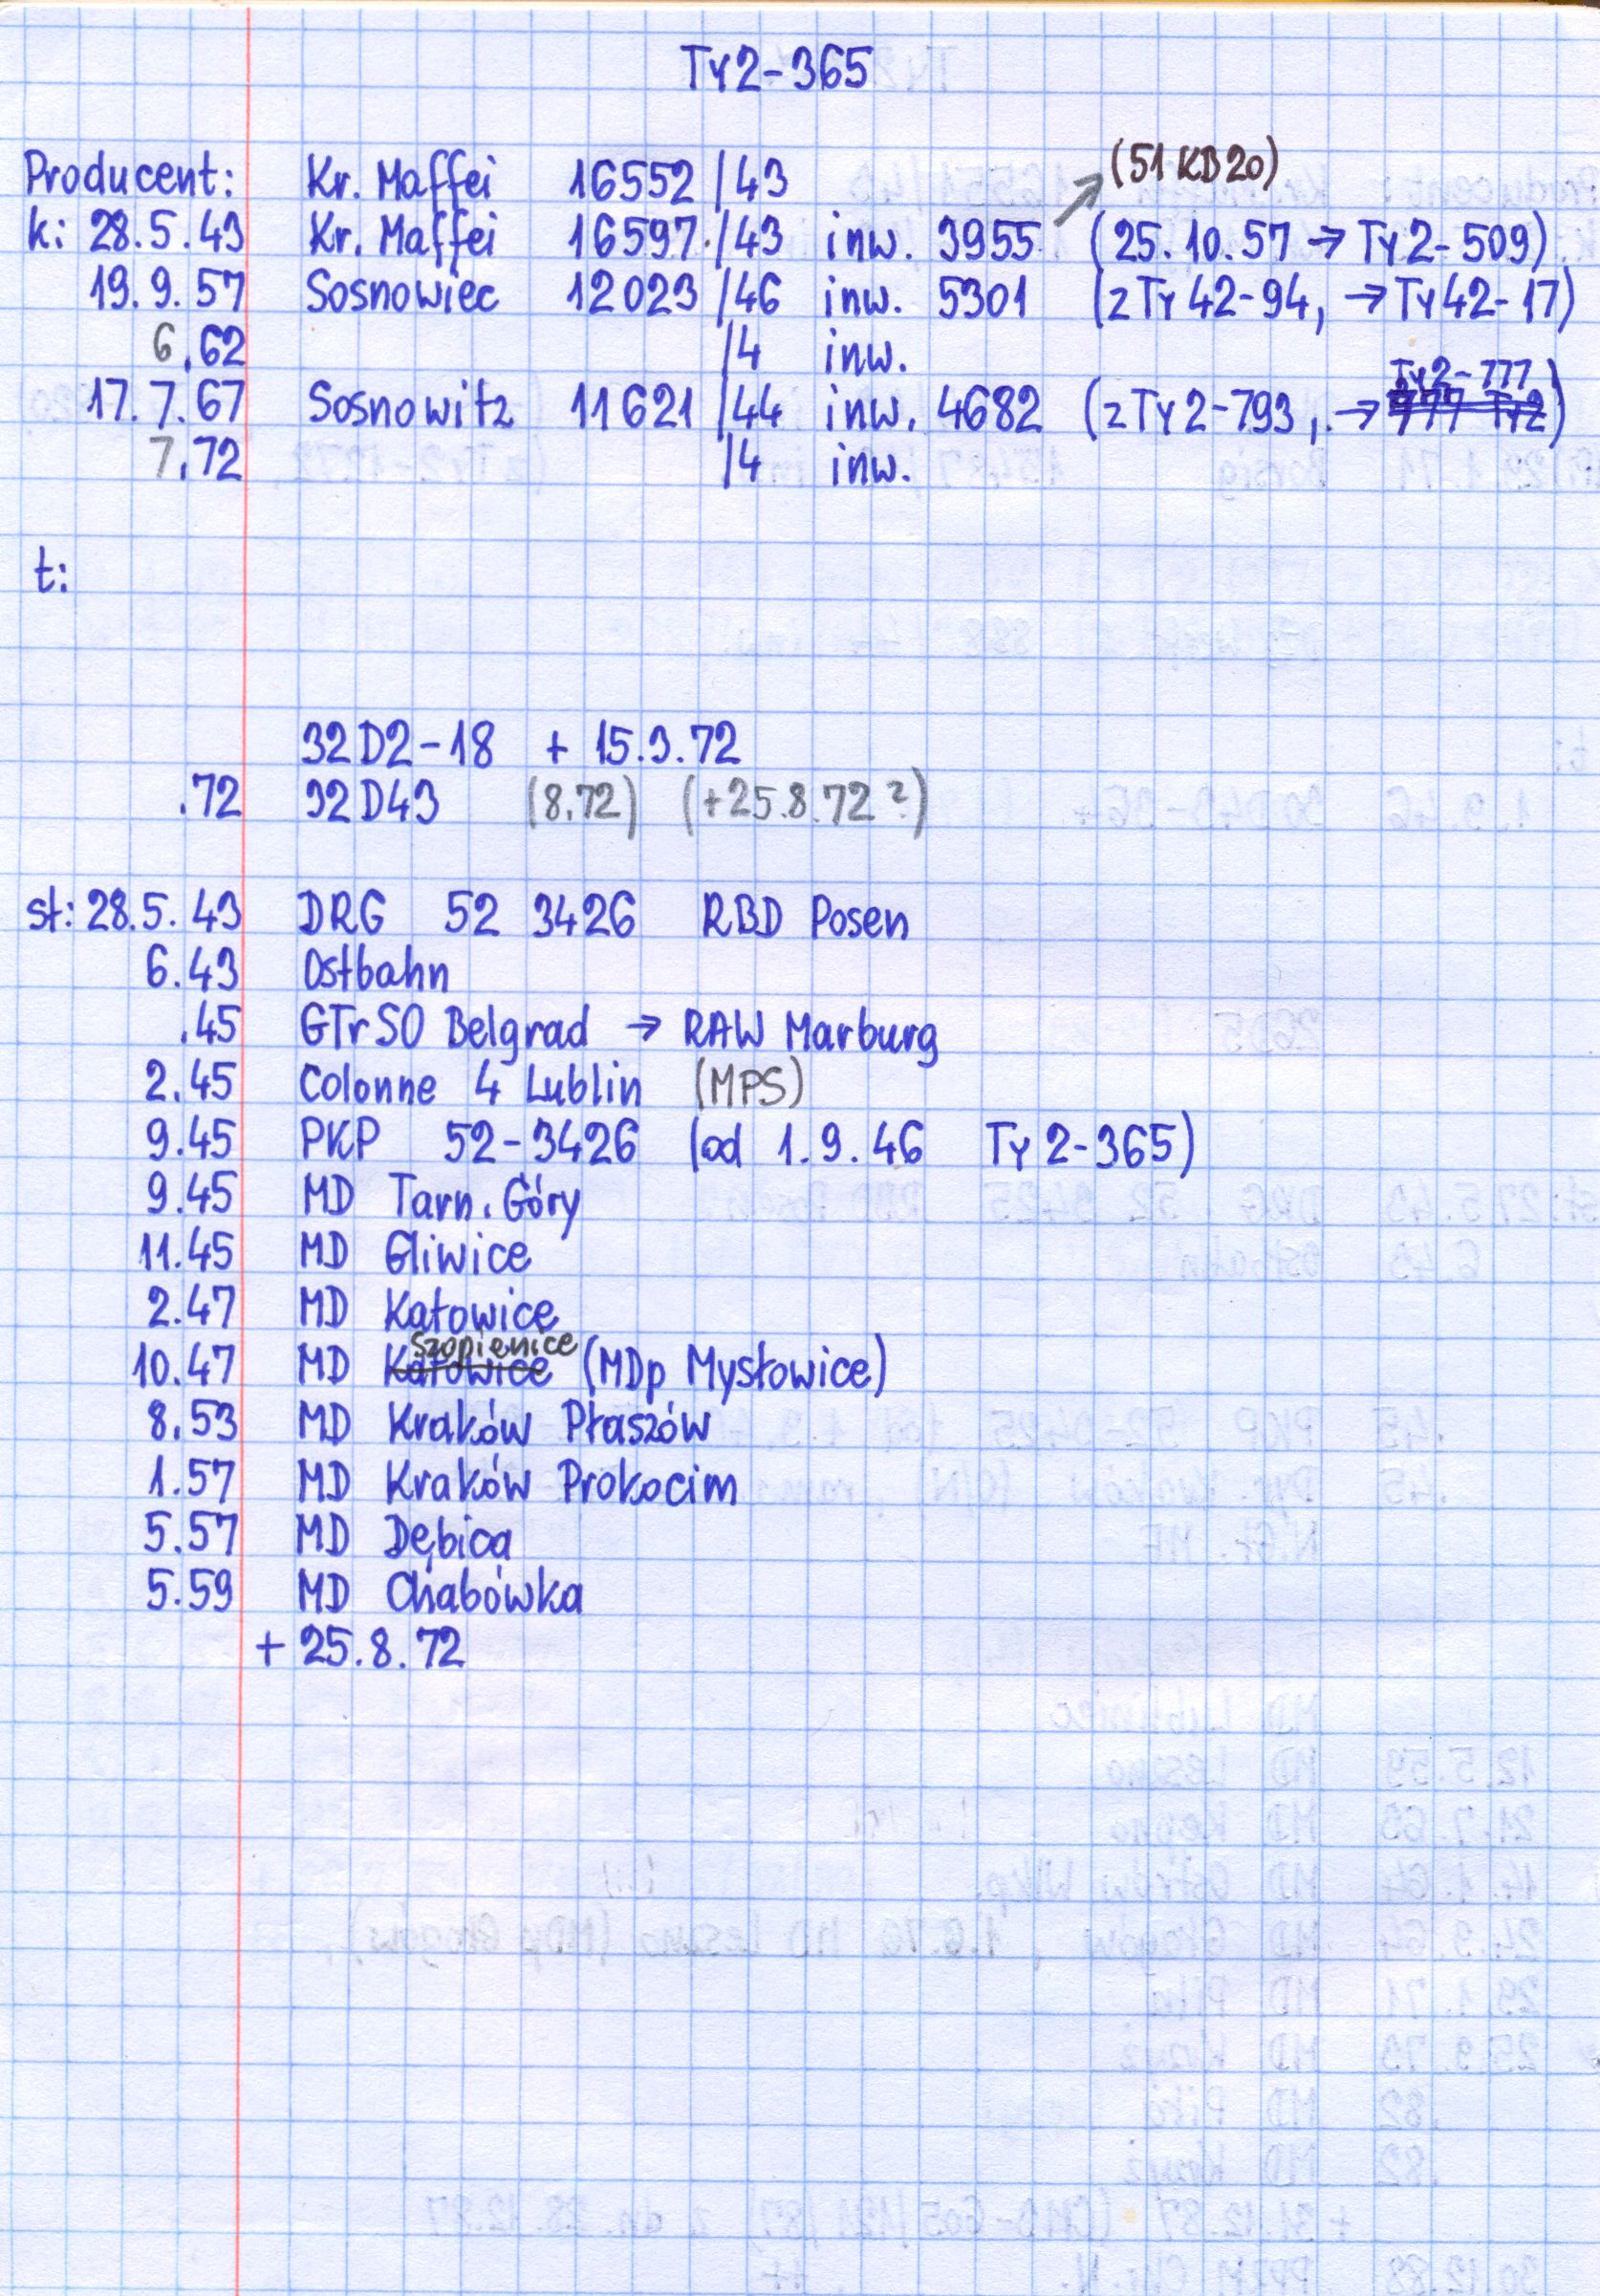 Ty2-365
(51 KD20)
Producent: Kr. Maffei 16552 /43
k: 28.5.43 Kr. Maffei 16597 /43 inw. 3955 (25.10.57 → Ty2-509)
19.9.57 Sosnowiec 12023 /46 inw. 5301 (z Ty42-94, → Ty42-17)
6.62 /4 inw.
17.7.67 Sosnowitz 11621 /44 inw. 4682 (z Ty2-793, → Ty2-777)
7.72 /4 inw.
t:
32D2-18 + 15.3.72
.72 32D43 (8.72) (+25.8.72?)
st: 28.5.43 DRG 52 3426 RBD Posen
6.43 Ostbahn
.45 GTrSO Belgrad → RAW Marburg
2.45 Colonne 4 Lublin (MPS)
9.45 PKP 52-3426 (od 1.9.46 Ty2-365)
9.45 MD Tarn. Góry
11.45 MD Gliwice
2.47 MD Katowice
10.47 MD Katowice Szopienice (MDp Mysłowice)
8.53 MD Kraków Płaszów
1.57 MD Kraków Prokocim
5.57 MD Dębica
5.59 MD Chabówka
+ 25.8.72